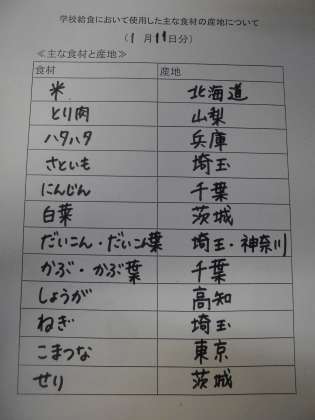 学校給食において使用した主な食材の産地について
(1月11日分)
≪主な食材と産地≫
食材 産地
米 北海道
とり肉 山梨
ハタハタ 兵庫
さといも 埼玉
にんじん 千葉
白菜 茨城
だいこん・だいこん葉 埼玉・神奈川
かぶ・かぶ葉 千葉
しょうが 高知
ねぎ 埼玉
こまつな 東京
せり 茨城